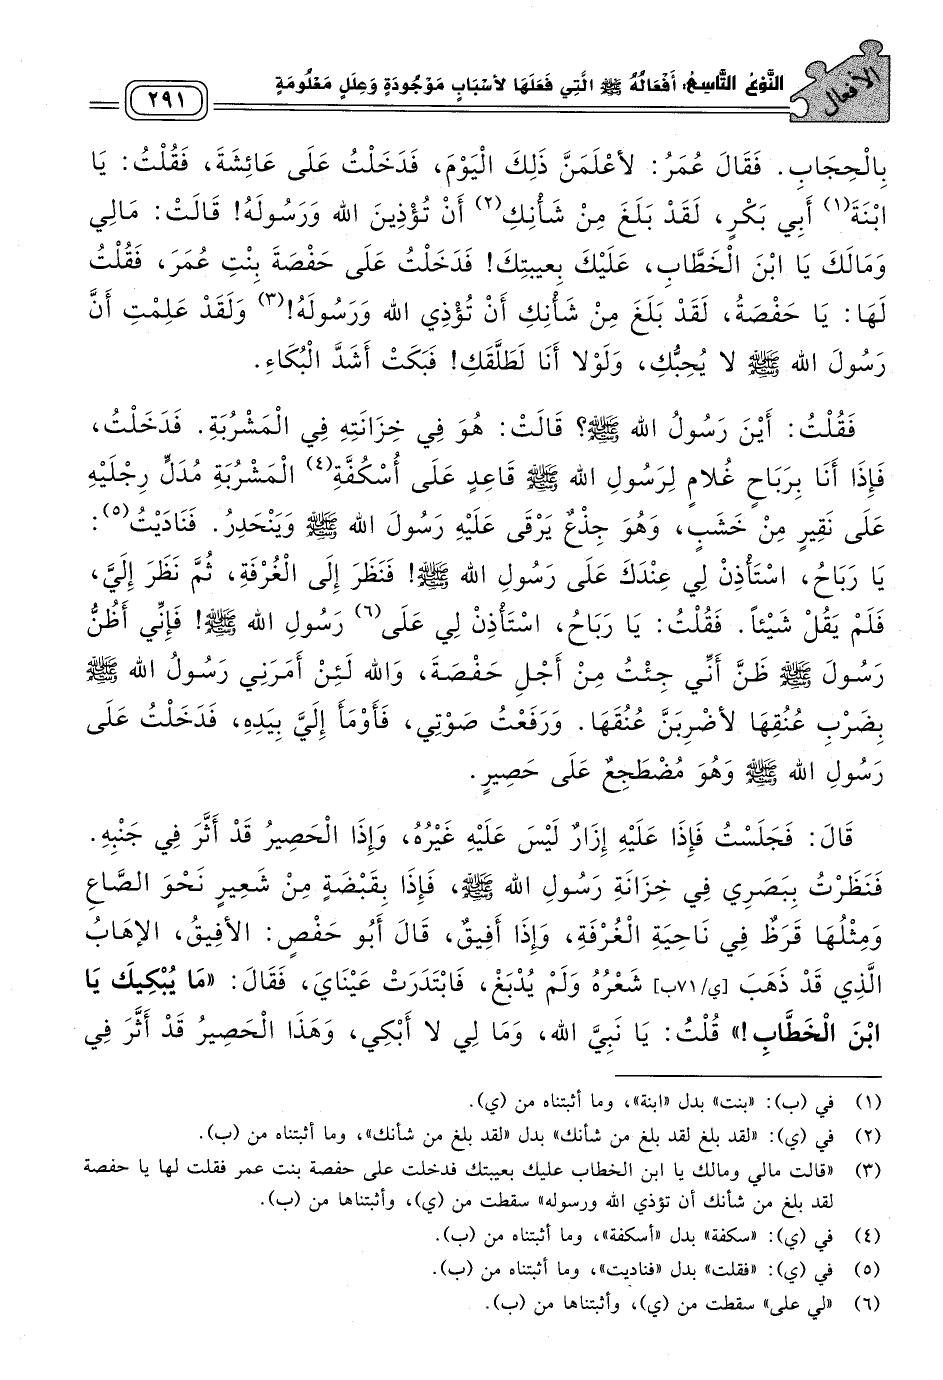 الأفعال
النَّوْعُ التَّاسِعُ: أَفْعَالُهُ ﷺ الَّتِي فَعَلَهَا لأَسْبَابٍ مَوْجُودَةٍ وَعِلَلٍ مَعْلُومَةٍ
٢٩١
بِالْحِجَابِ. فَقَالَ عُمَرُ: لأَعْلَمَنَّ ذَلِكَ الْيَوْمَ، فَدَخَلْتُ عَلَى عَائِشَةَ، فَقُلْتُ: يَا
ابْنَةَ(١) أَبِي بَكْرٍ، لَقَدْ بَلَغَ مِنْ شَأْنِكِ(٢) أَنْ تُؤْذِينَ الله وَرَسُولَهُ! قَالَتْ: مَالِي
وَمَالَكَ يَا ابْنَ الْخَطَّابِ، عَلَيْكَ بِعيبتِكَ! فَدَخَلْتُ عَلَى حَفْصَةَ بِنْتِ عُمَرَ، فَقُلْتُ
لَهَا: يَا حَفْصَةُ، لَقَدْ بَلَغَ مِنْ شَأْنِكِ أَنْ تُؤْذِي الله وَرَسُولَهُ!(٣) وَلَقَدْ عَلِمْتِ أَنَّ
رَسُولَ الله ﷺ لا يُحِبُّكِ، وَلَوْلا أَنَا لَطَلَّقَكِ! فَبَكَتْ أَشَدَّ الْبُكَاءِ.
فَقُلْتُ: أَيْنَ رَسُولُ الله ﷺ؟ قَالَتْ: هُوَ فِي خِزَانَتِهِ فِي الْمَشْرُبَةِ. فَدَخَلْتُ،
فَإِذَا أَنَا بِرَبَاحٍ غُلامٍ لِرَسُولِ الله ﷺ قَاعِدٍ عَلَى أُسْكُفَّةِ(٤) الْمَشْرُبَةِ مُدَلٍّ رِجْلَيْهِ
عَلَى نَقِيرٍ مِنْ خَشَبٍ، وَهُوَ جِذْعٌ يَرْقَى عَلَيْهِ رَسُولَ الله ﷺ وَيَنْحَدِرُ. فَنَادَيْتُ(٥):
يَا رَبَاحُ، اسْتَأْذِنْ لِي عِنْدَكَ عَلَى رَسُولِ الله ﷺ! فَنَظَرَ إِلَى الْغُرْفَةِ، ثُمَّ نَظَرَ إِلَيَّ،
فَلَمْ يَقُلْ شَيْئاً. فَقُلْتُ: يَا رَبَاحُ، اسْتَأْذِنْ لِي عَلَى(٦) رَسُولِ الله ﷺ! فَإِنِّي أَظُنُّ
رَسُولَ ﷺ ظَنَّ أَنِّي جِئْتُ مِنْ أَجْلِ حَفْصَةَ، وَالله لَئِنْ أَمَرَنِي رَسُولُ الله ﷺ
بِضَرْبِ عُنُقِهَا لأَضْرِبَنَّ عُنُقَهَا. وَرَفَعْتُ صَوْتِي، فَأَوْمَأَ إِلَيَّ بِيَدِهِ، فَدَخَلْتُ عَلَى
رَسُولِ الله ﷺ وَهُوَ مُضْطَجِعٌ عَلَى حَصِيرٍ.
قَالَ: فَجَلَسْتُ فَإِذَا عَلَيْهِ إِزَارٌ لَيْسَ عَلَيْهِ غَيْرُهُ، وَإِذَا الْحَصِيرُ قَدْ أَثَّرَ فِي جَنْبِهِ.
فَنَظَرْتُ بِبَصَرِي فِي خِزَانَةِ رَسُولِ الله ﷺ، فَإِذَا بِقَبْضَةٍ مِنْ شَعِيرٍ نَحْوَ الصَّاعِ
وَمِثْلُهَا قَرَظٌ فِي نَاحِيَةِ الْغُرْفَةِ، وَإِذَا أَفِيقٌ، قَالَ أَبُو حَفْصٍ: الأَفِيقُ، الإِهَابُ
الَّذِي قَدْ ذَهَبَ [ي/٧١ب] شَعْرُهُ وَلَمْ يُدْبَغْ، فَابْتَدَرَتْ عَيْنَايَ، فَقَالَ: «مَا يُبْكِيكَ يَا
ابْنَ الْخَطَّابِ!» قُلْتُ: يَا نَبِيَّ الله، وَمَا لِي لا أَبْكِي، وَهَذَا الْحَصِيرُ قَدْ أَثَّرَ فِي
(١) في (ب): «بنت» بدل «ابنة»، وما أثبتناه من (ي).
(٢) في (ي): «لقد بلغ لقد بلغ من شأنك» بدل «لقد بلغ من شأنك»، وما أثبتناه من (ب).
(٣) «قالت مالي ومالك يا ابن الخطاب عليك بعيبتك فدخلت على حفصة بنت عمر فقلت لها يا حفصة
لقد بلغ من شأنك أن تؤذي الله ورسوله» سقطت من (ي)، وأثبتناها من (ب).
(٤) في (ي): «سكفة» بدل «أسكفة»، وما أثبتناه من (ب).
(٥) في (ي): «فقلت» بدل «فناديت»، وما أثبتناه من (ب).
(٦) «لي على» سقطت من (ي)، وأثبتناها من (ب).